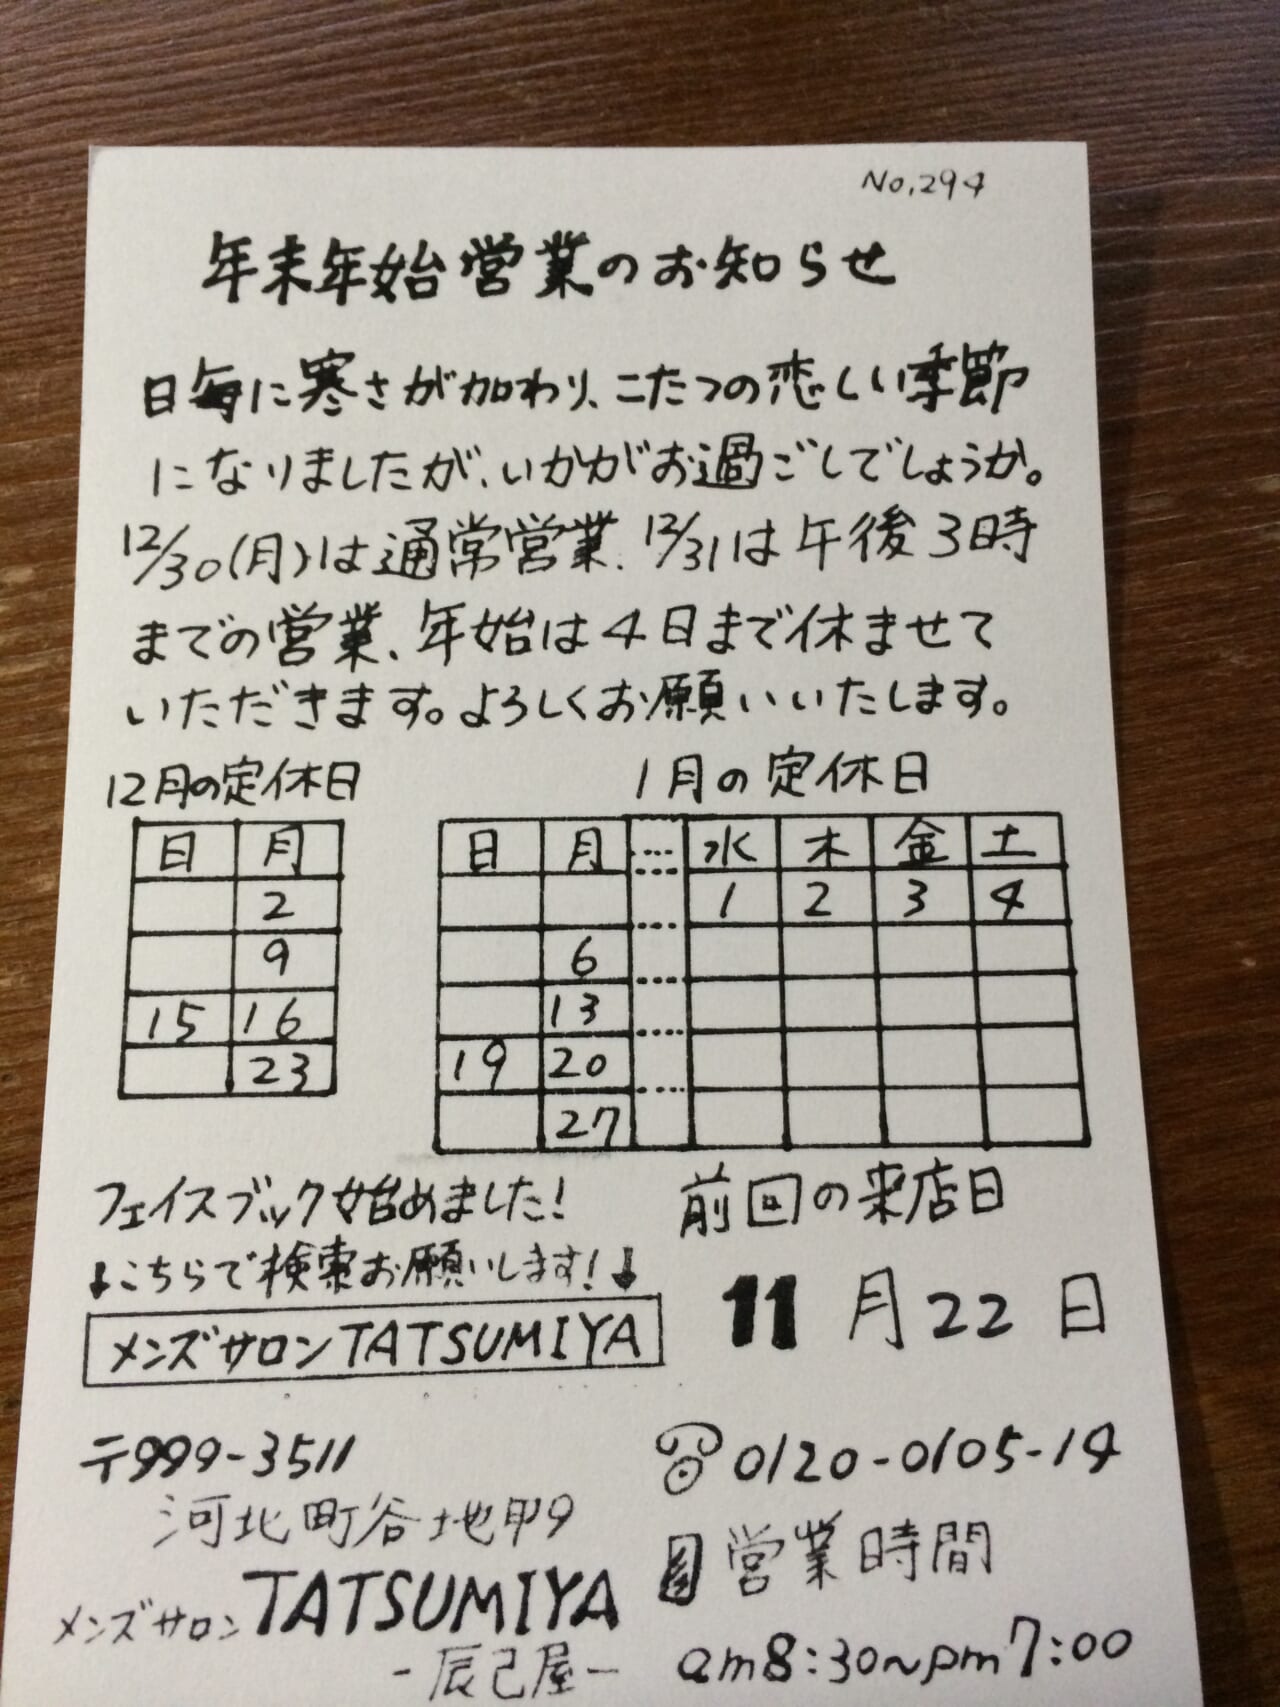 No.294
年末年始営業のお知らせ
日毎に寒さが加わり、こたつの恋しい季節
になりましたが、いかがお過ごしでしょうか。
12/30(月)は通常営業、12/31は午後3時
までの営業、年始は4日まで休ませて
いただきます。よろしくお願いいたします。
12月の定休日
日 月
2
9
15 16
23
1月の定休日
日 月 … 水 木 金 土
1 2 3 4
6
13
19 20
27
フェイスブック始めました!
↓こちらで検索お願いします!↓
メンズサロンTATSUMIYA
前回の来店日
11月22日
〒999-3511
河北町谷地甲9
メンズサロンTATSUMIYA
-辰巳屋-
☎0120-0105-14
営業時間
am8:30~pm7:00